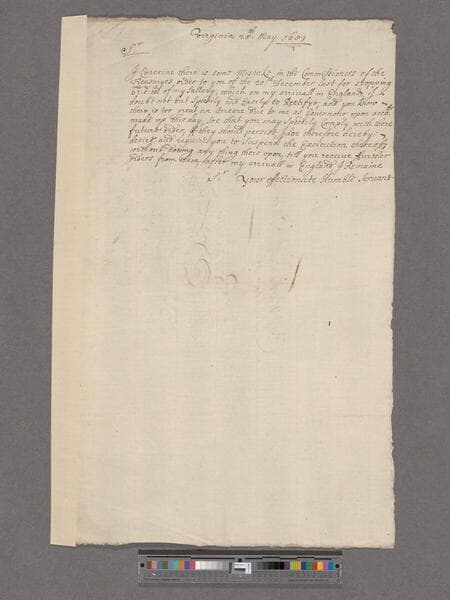 Virginia 20th May 1689
Sr
I Conceive there is some Mistake in the Commissioners of the
Treasurys order to you of the 20th December last for stopping
of my Sallary, which on my arrivall in England, I
doubt not but Speedily and Easily to Rectifye, and you know
there is too neer an Arreare due to me as Governor upon acct
made up this day, soe that you may Speedily Comply with there
future order, if they should persist, I doe therefore hereby
desire and require you to Suspend the Execution thereof
without doeing any thing there upon, till you receive further
orders from them, after my arrivall in England, I Remaine
Sr your affectionate Humble Servant